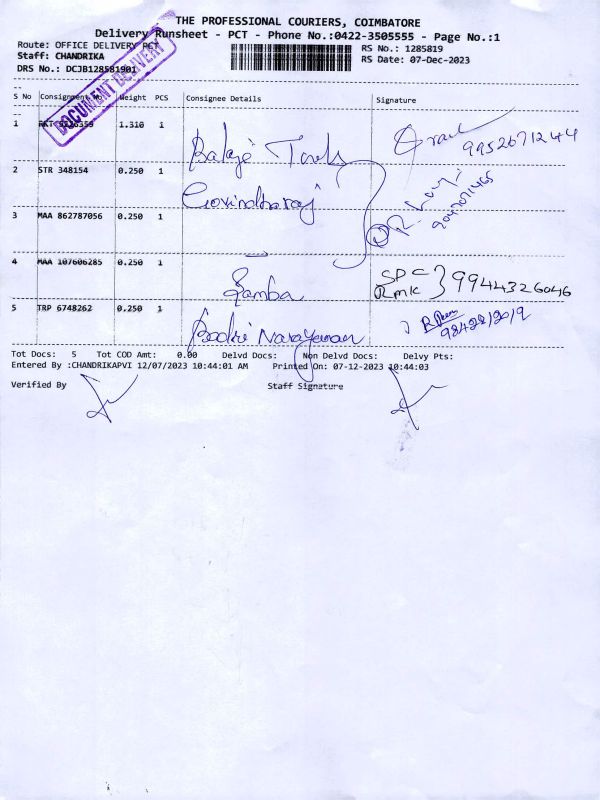 THE PROFESSIONAL COURIERS, COIMBATORE
Delivery Runsheet - PCT - Phone No.:0422-3505555 - Page No.:1
Route: OFFICE DELIVERY PCT
RS No.: 1285819
Staff: CHANDRIKA
RS Date: 07-Dec-2023
DRS No.: DCJB128581901
DOCUMENT DELIVERY
S No Consignment No Weight PCS Consignee Details Signature
1 1.310 1 Balaji 9952671244
2 STR 348154 0.250 1 Govindharaj
3 MAA 862787056 0.250 1
4 MAA 107606285 0.250 1 Samba SPC RMK } 9944326046
5 TRP 6748262 0.250 1 Badri Narayanan
Tot Docs: 5 Tot COD Amt: 0.00 Delvd Docs: Non Delvd Docs: Delvy Pts:
Entered By :CHANDRIKAPVI 12/07/2023 10:44:01 AM Printed On: 07-12-2023 10:44:03
Verified By Staff Signature